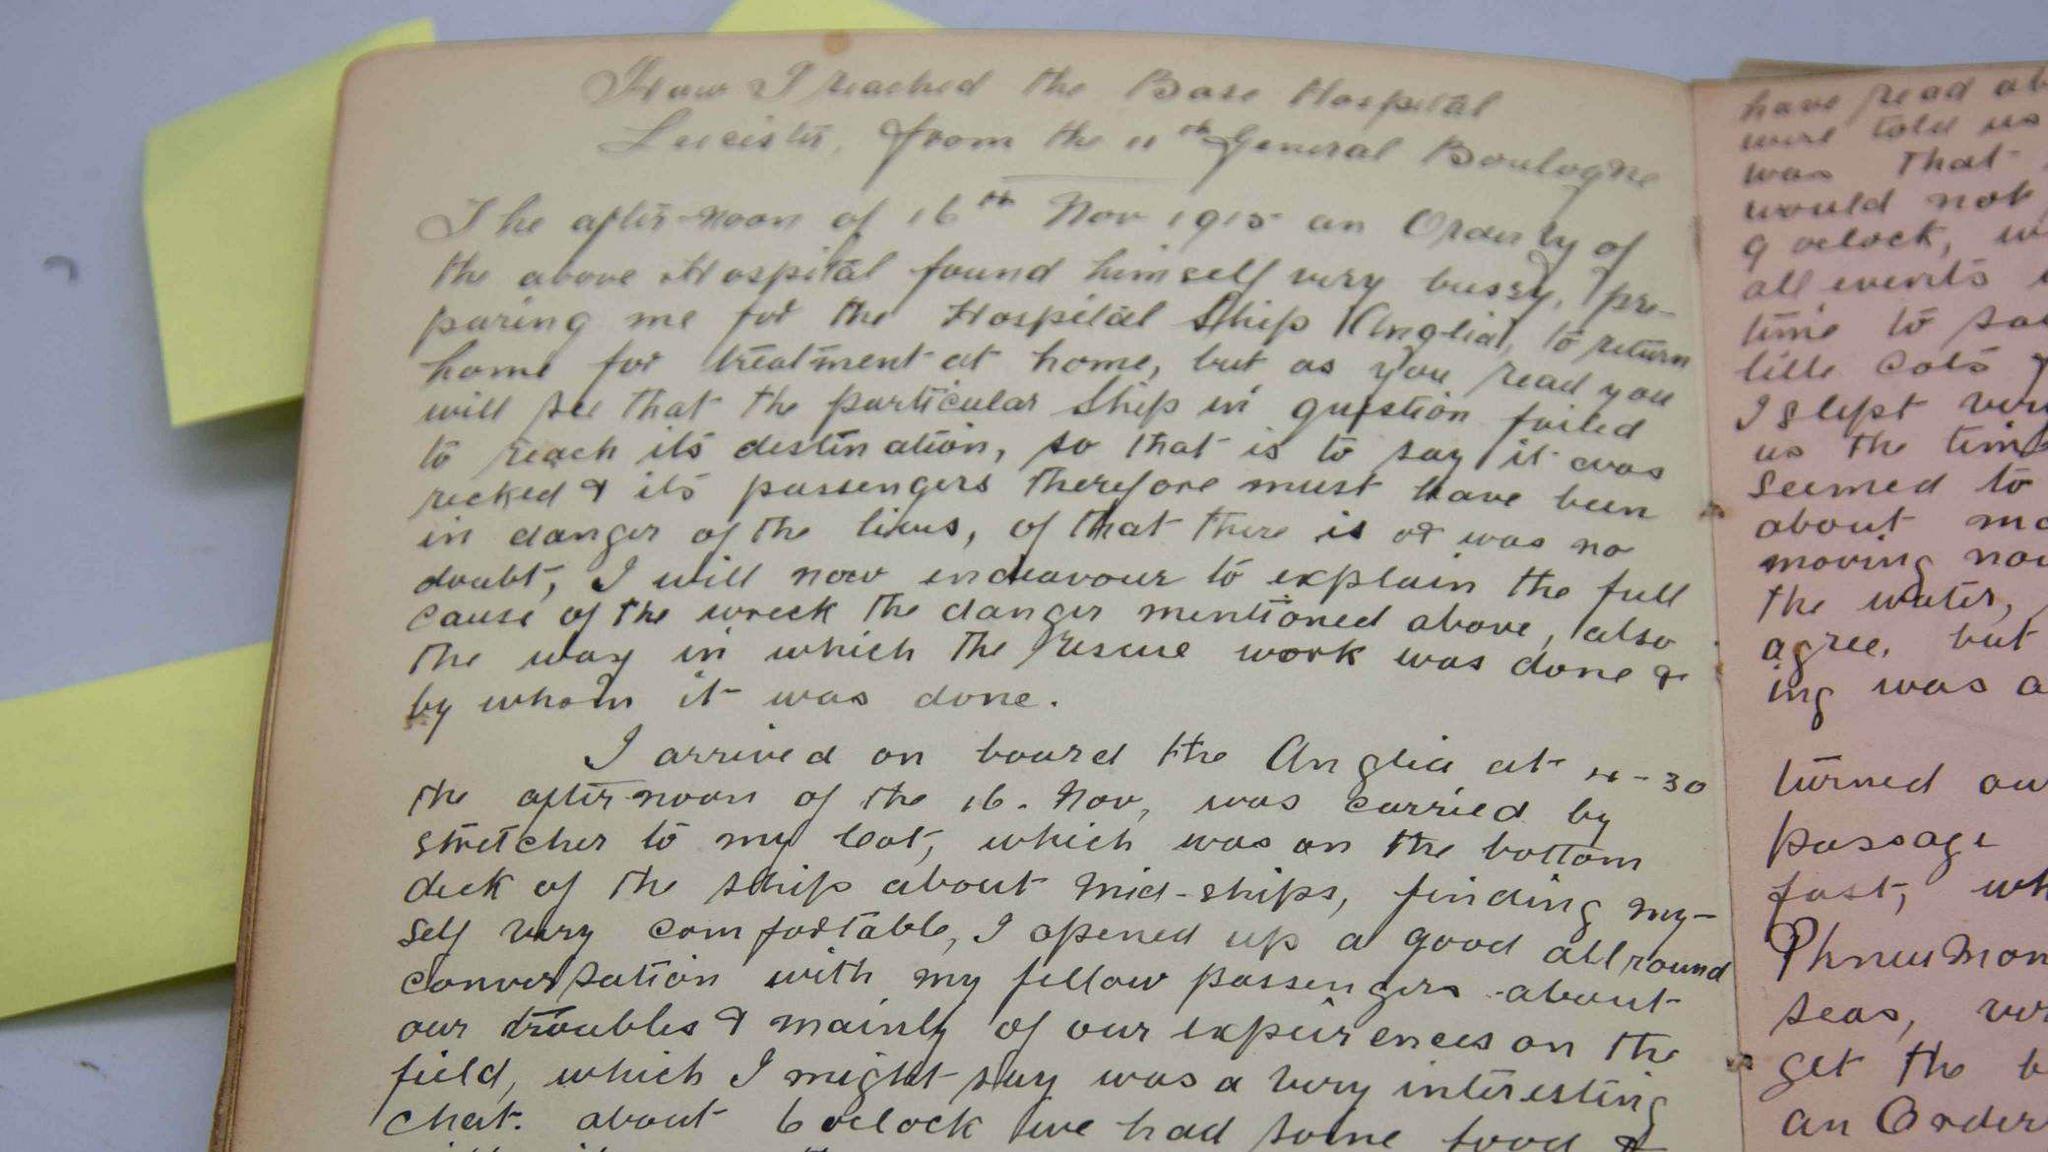 How I reached the Base Hospital
Leicister, from the 11th General Boulogne
The after-noon of 16th Nov 1915 an Orderly of
the above Hospital found himself very bussy, pre-
paring me for the Hospital Ship (Anglia), to return
home for treatment at home, but as you read you
will see that the particular Ship in question failed
to reach its destination, so that is to say it was
recked & its passengers therefore must have been
in danger of the lives, of that there is or was no
doubt, I will now endeavour to explain the full
cause of the wreck the danger mentioned above, also
the way in which the rescue work was done &
by whom it was done.
I arrived on board the Anglia at 4-30
the after noon of the 16. Nov, was carried by
stretcher to my Cot, which was on the bottom
deck of the ship about mid-ships, finding my-
self very comfortable, I opened up a good all round
conversation with my fellow passengers about
our troubles & mainly of our expeirences on the
field, which I might say was a very interesting
chat. about 6 oclock we had some food &
have read ab
were told us
was that
would not
9 oclock, w
all events
time to sa
little cots
I slept ver
us the tim
seemed to
about mo
moving now
the water,
agree, but
ing was a
turned ou
passage
fast, wh
Phneumon
seas, ver
get the b
an Order